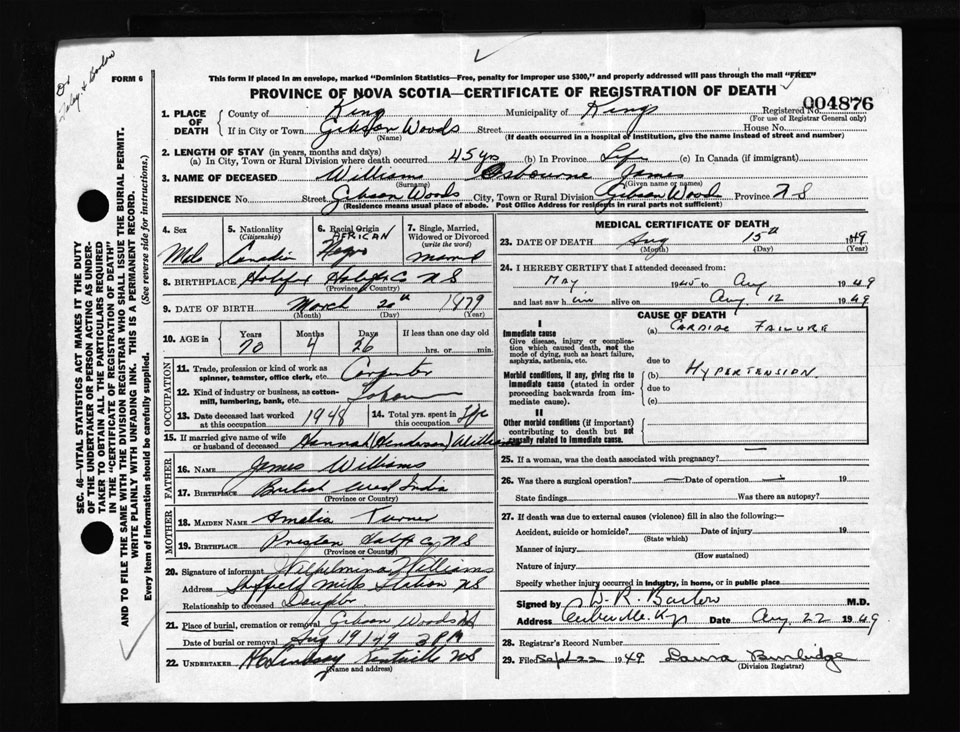 Barlow
FORM 6
This form if placed in an envelope, marked "Dominion Statistics—Free, penalty for improper use $300," and properly addressed will pass through the mail "FREE"
PROVINCE OF NOVA SCOTIA—CERTIFICATE OF REGISTRATION OF DEATH
004876
1. PLACE OF DEATH County of King Municipality of Kings Registered No.
(For use of Registrar General only)
If in City or Town Gibson Woods Street House No.
(Name) (If death occurred in a hospital or institution, give the name instead of street and number)
2. LENGTH OF STAY (in years, months and days)
(a) In City, Town or Rural Division where death occurred 45 ys (b) In Province Life (c) In Canada (if immigrant)
3. NAME OF DECEASED Williams Osbourne James
(Surname) (Given name or names)
RESIDENCE No. Street Gibson Woods City, Town or Rural Division Gibson Woods Province N S
(Residence means usual place of abode. Post Office Address for residents in rural parts not sufficient)
4. Sex Male
5. Nationality (Citizenship) Canadian
6. Racial Origin AFRICAN Negro
7. Single, Married, Widowed or Divorced (write the word) Married
8. BIRTHPLACE Halifax Halifax C. N S
(Province or County)
9. DATE OF BIRTH March 20th 1879
(Month) (Day) (Year)
10. AGE in Years 70 Months 4 Days 26 If less than one day old hrs. or min.
OCCUPATION
11. Trade, profession or kind of work as spinner, teamster, office clerk, etc. Carpenter
12. Kind of industry or business, as cotton-mill, lumbering, bank, etc.
13. Date deceased last worked at this occupation 1948
14. Total yrs. spent in Life
15. If married give name of wife or husband of deceased Hannah (Henderson) Williams
FATHER
16. Name James Williams
17. Birthplace British West India
(Province or Country)
MOTHER
18. Maiden Name Amelia Turner
19. Birthplace Preston Halif C. NS
(Province or Country)
20. Signature of informant Wilhelmina Williams
Address Sheffield Mills Station NS
Relationship to deceased Daughter
21. Place of burial, cremation or removal Gibson Woods NS
Date of burial or removal Aug 19/49 2 PM
22. UNDERTAKER Lindsay Kentville NS
(Name and address)
MEDICAL CERTIFICATE OF DEATH
23. DATE OF DEATH Aug 15th 1949
(Month) (Day) (Year)
24. I HEREBY CERTIFY that I attended deceased from:
May 1945 to Aug 1949
and last saw him alive on Aug. 12 1949
CAUSE OF DEATH
I
Immediate cause
Give disease, injury or complication which caused death, not the mode of dying, such as heart failure, asphyxia, asthenia, etc.
(a) CARDIAC FAILURE
due to
Morbid conditions, if any, giving rise to immediate cause (stated in order proceeding backwards from immediate cause).
(b) HYPERTENSION
due to
(c)
II
Other morbid conditions (if important) contributing to death but not causally related to immediate cause.
25. If a woman, was the death associated with pregnancy?
26. Was there a surgical operation Date of operation 19
State findings Was there an autopsy?
27. If death was due to external causes (violence) fill in also the following:—
Accident, suicide or homicide? Date of injury 19
(State which)
Manner of injury
(How sustained)
Nature of injury
Specify whether injury occurred in industry, in home, or in public place
Signed by D. R. Barlow M.D.
Address Date Aug. 22 1949
28. Registrar's Record Number
29. Filed Sept 22 1949 Laura Burbidge
(Division Registrar)
SEC. 46—VITAL STATISTICS ACT MAKES IT THE DUTY
OF THE UNDERTAKER OR PERSON ACTING AS UNDER-
TAKER TO OBTAIN ALL THE PARTICULARS REQUIRED
IN THE "CERTIFICATE OF REGISTRATION OF DEATH"
AND TO FILE THE SAME WITH THE DIVISION REGISTRAR WHO SHALL ISSUE THE BURIAL PERMIT.
WRITE PLAINLY WITH UNFADING INK. THIS IS A PERMANENT RECORD.
Every item of information should be carefully supplied. (See reverse side for instructions.)